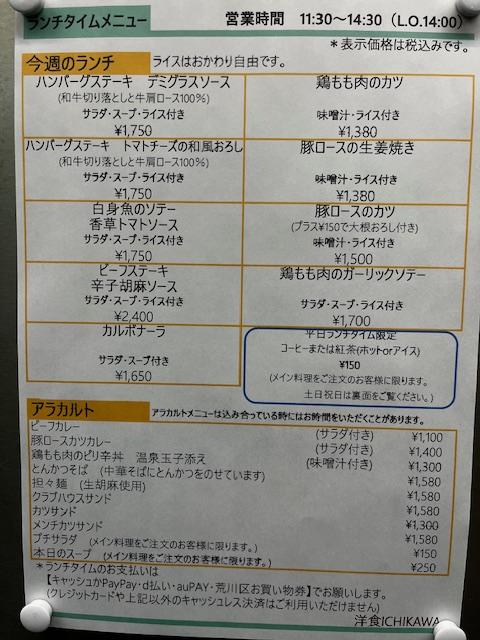 ランチタイムメニュー
営業時間 11:30～14:30（L.O.14:00）
＊表示価格は税込みです。
今週のランチ ライスはおかわり自由です。
ハンバーグステーキ デミグラスソース
(和牛切り落としと牛肩ロース100%)
サラダ・スープ・ライス付き
¥1,750
鶏もも肉のカツ
味噌汁・ライス付き
¥1,380
ハンバーグステーキ トマトチーズの和風おろし
(和牛切り落としと牛肩ロース100%)
サラダ・スープ・ライス付き
¥1,750
豚ロースの生姜焼き
味噌汁・ライス付き
¥1,380
白身魚のソテー
香草トマトソース
サラダ・スープ・ライス付き
¥1,750
豚ロースのカツ
(プラス¥150で大根おろし付き)
味噌汁・ライス付き
¥1,500
ビーフステーキ
辛子胡麻ソース
サラダ・スープ・ライス付き
¥2,400
鶏もも肉のガーリックソテー
サラダ・スープ・ライス付き
¥1,700
カルボナーラ
サラダ・スープ付き
¥1,650
平日ランチタイム限定
コーヒーまたは紅茶(ホットorアイス)
¥150
(メイン料理をご注文のお客様に限ります。
土日祝日は裏面をご覧ください。)
アラカルト アラカルトメニューは込み合っている時にはお時間をいただくことがあります。
ビーフカレー (サラダ付き) ¥1,100
豚ロースカツカレー (サラダ付き) ¥1,400
鶏もも肉のピリ辛丼 温泉玉子添え (味噌汁付き) ¥1,300
とんかつそば (中華そばにとんかつをのせています) ¥1,580
担々麺 (生胡麻使用) ¥1,580
クラブハウスサンド ¥1,580
カツサンド ¥1,300
メンチカツサンド ¥1,580
プチサラダ (メイン料理をご注文のお客様に限ります。) ¥150
本日のスープ (メイン料理をご注文のお客様に限ります。) ¥250
＊ランチタイムのお支払いは
【キャッシュかPayPay・d払い・auPAY・荒川区お買い物券】でお願いします。
(クレジットカードや上記以外のキャッシュレス決済はご利用いただけません)
洋食ICHIKAWA